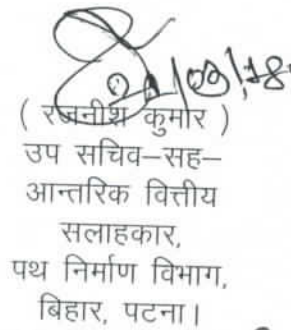 /09/18
( रजनीश कुमार )
उप सचिव–सह–
आन्तरिक वित्तीय
सलाहकार,
पथ निर्माण विभाग,
बिहार, पटना।